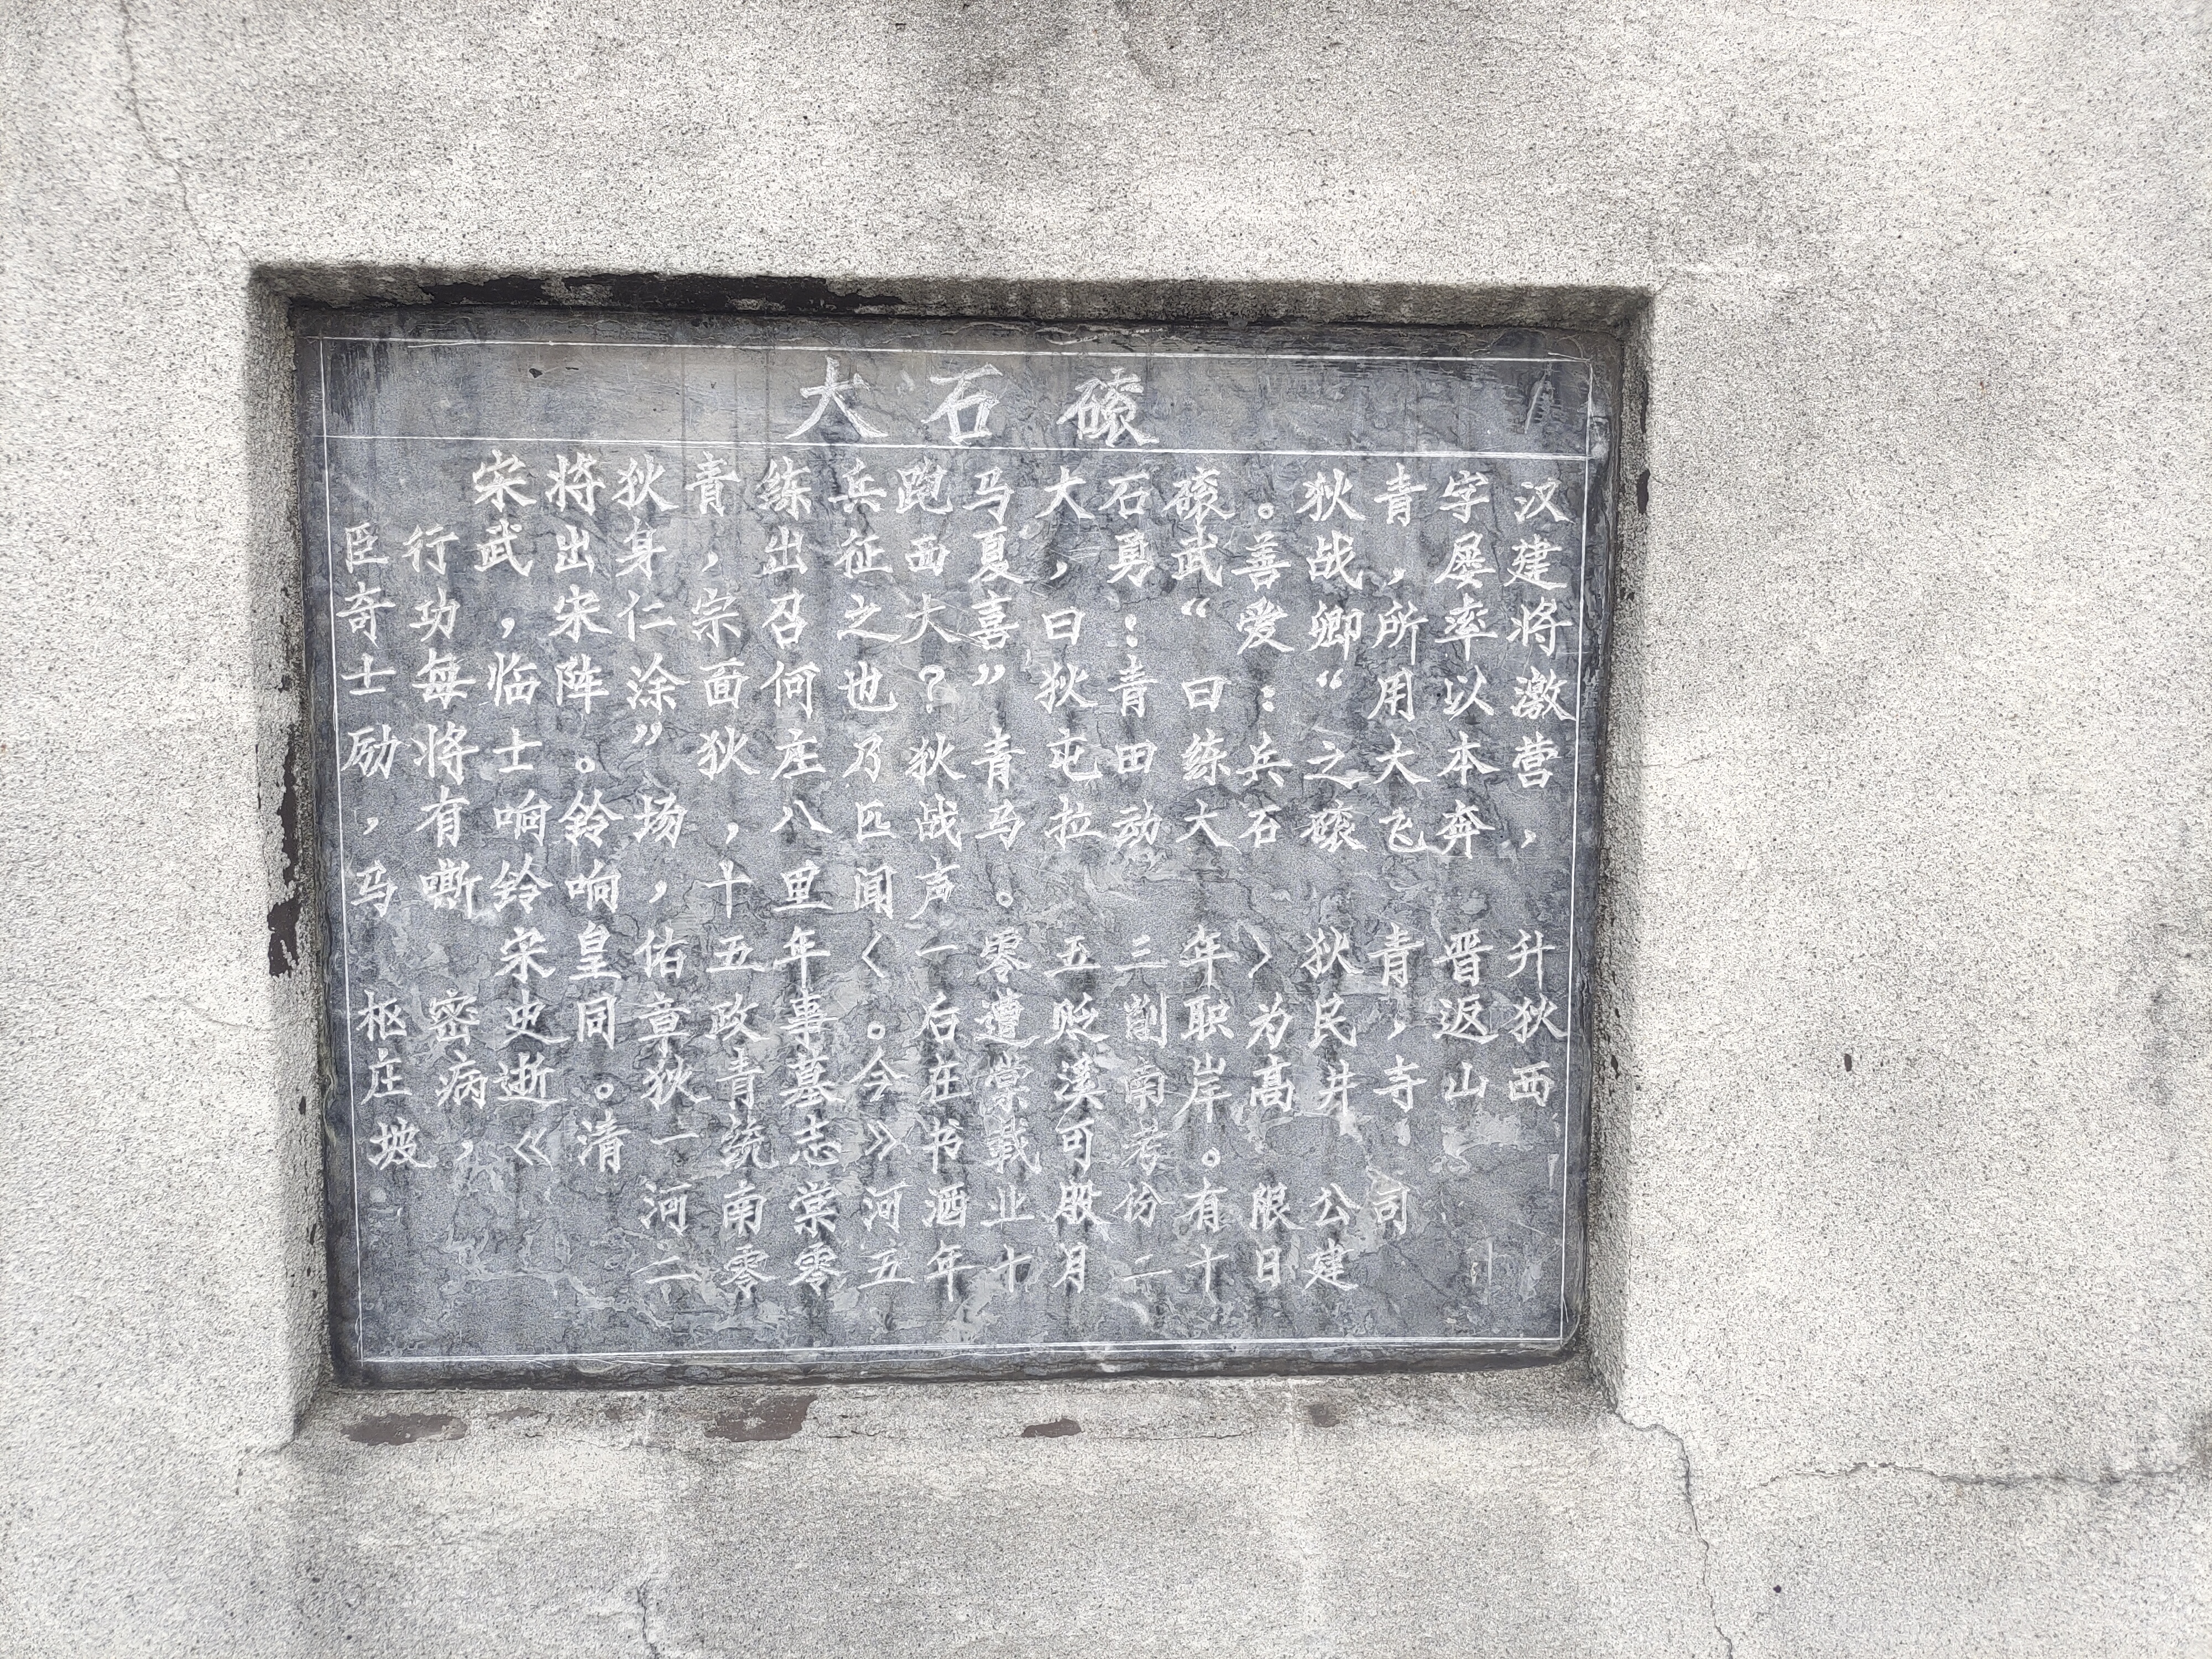 大石磙
宋将狄青练兵跑马大石磙。狄青字汉
臣行武出身，出征西夏，勇武善战，屡建
奇功，宋仁宗召之大喜曰：“爱卿所率将
士每临阵涂面何也？”狄青曰：“用以激
励将士。”狄庄乃狄青屯田练兵之大本营
，有响铃场，八匹战马拉动大石磙飞奔，
马嘶铃响，十里闻声。
宋皇佑五年〈一零五三年〉狄青晋升
枢密史同章政事。后遭贬削职为民，返狄
庄病逝。狄青墓今在棠溪南岸高井寺山西
坡，《清一统志》书载可考。
河南棠河酒业股份有限公司
二零零五年十月二十日建